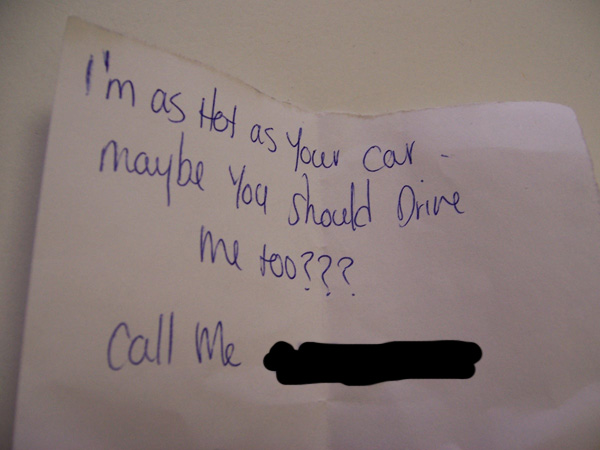 I'm as Hot as your car -
maybe you should Drive
me too???
Call Me